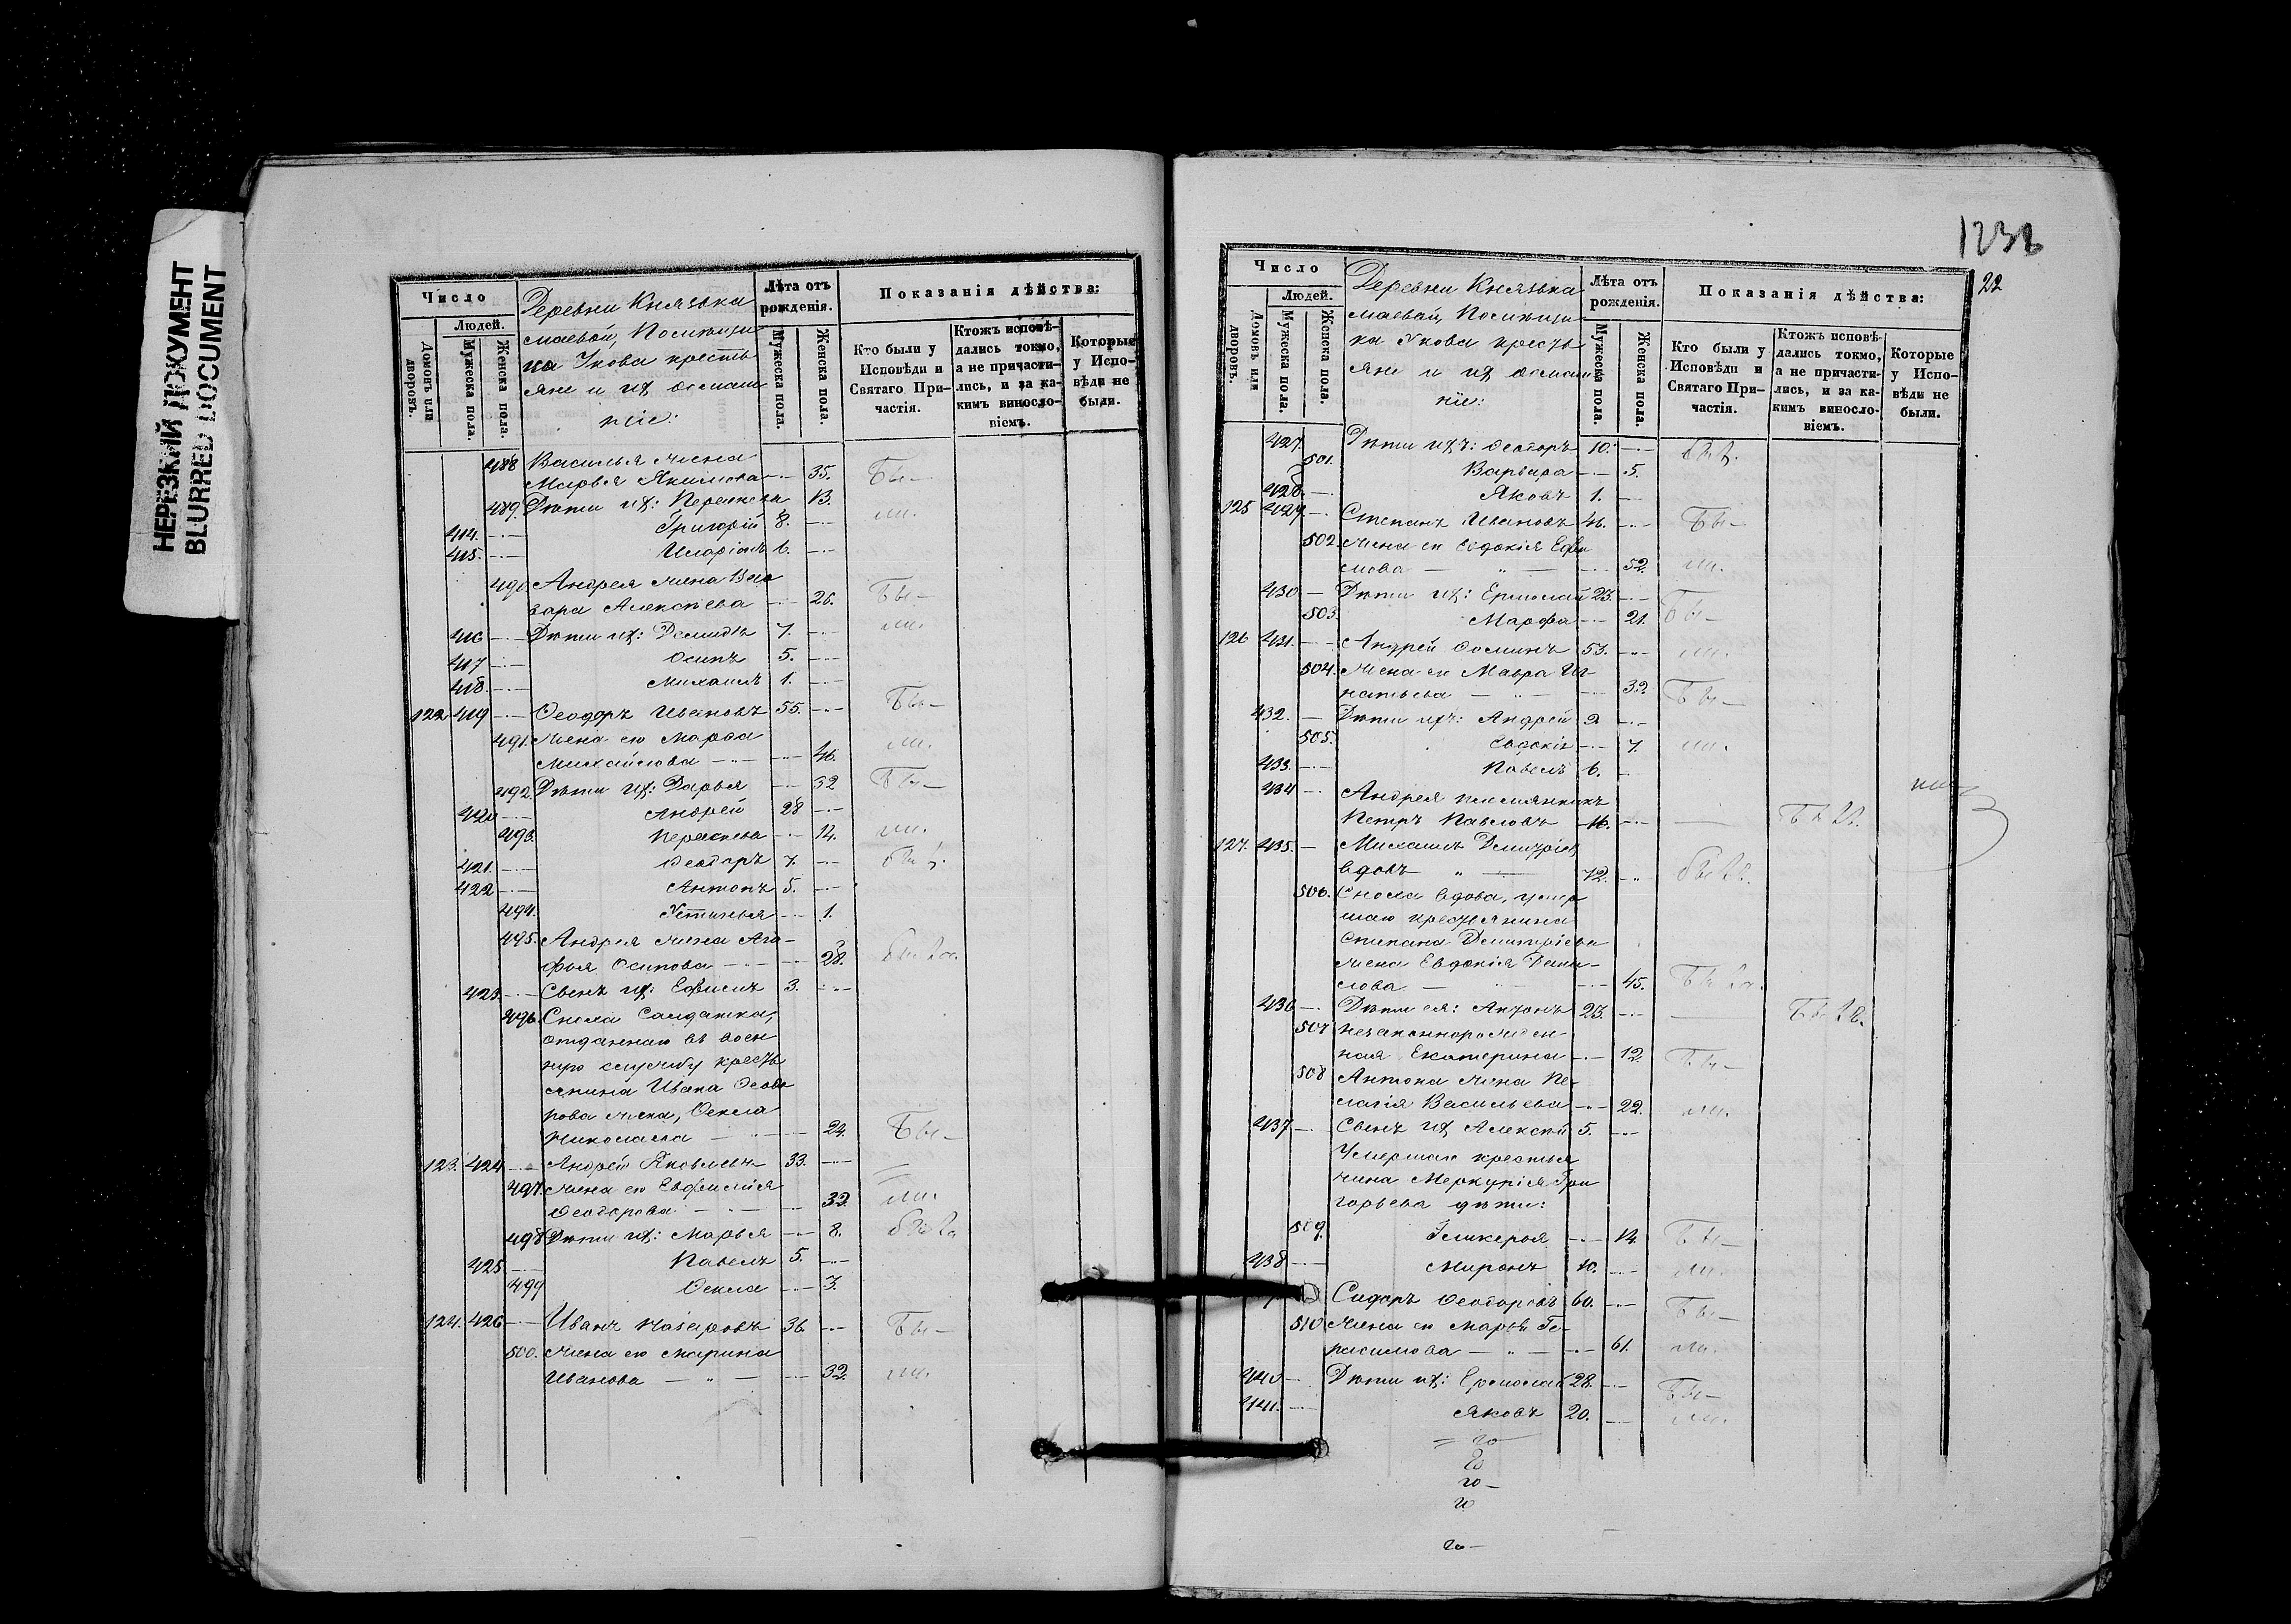 НЕРЕЗКИЙ ДОКУМЕНТ
BLURRED DOCUMENT
Число
Людей.
Домовъ или дворовъ.
Мужеска пола.
Женска пола.
Деревни Князька
маевой, Помѣщи
ка Укова кресть
яне и их домаш
ніе:
Лѣта отъ рожденія.
Мужеска пола.
Женска пола.
Показанія дѣйства:
Кто были у Исповѣди и Святаго Причастія.
Ктожъ исповѣдались токмо, а не причастились, и за какимъ винословіемъ.
Которые у Исповѣди не были.
488 Василья жена
Марья Якимова 35. Бы-
489. Дѣти их: Параскева 13. ли.
414. Григорій 8.
415. Иларіонъ 6.
490 Андрея жена Вар
вара Алексѣева 26. Бы-
416 Дѣти их: Демидъ 7. ли.
417 Осипъ 5.
418. Михаилъ 1.
122 419 Ѳеодоръ Ивановъ 55. Бы-
491. Жена ею Марѳа
Михайлова 46. ли.
492 Дѣти их: Дарья 32 Бы-
420 Андрей 28
493. Параскева 14. ли.
421. Ѳеодоръ 7.
422 Антонъ 5.
494. Устинья 1.
495. Андрея жена Ага-
фья Осипова 28.
423. Сынъ их: Ефимъ 3.
496. Сноха Солдатка,
отданнаго въ воен
ную службу кресть
янина Ивана Ѳеодо
рова жена, Ѳекла
Николаева 24. Бы-
123. 424 Андрей Яковлевъ 33.
497. Жена ею Евфимія
Ѳеодорова 32. ли.
498 Дѣти их: Марья 8.
425 Павелъ 5.
499 Ѳекла 3.
124. 426 Иванъ Назаровъ 36 Бы-
500. Жена ею Марина
Иванова 32. ли.
1232
22
Число
Людей.
Домовъ или дворовъ.
Мужеска пола.
Женска пола.
Деревни Князька
маевай, Помѣщи
ка Укова кресть
яне и их домаш
ніе:
Лѣта отъ рожденія.
Мужеска пола.
Женска пола.
Показанія дѣйства:
Кто были у Исповѣди и Святаго Причастія.
Ктожъ исповѣдались токмо, а не причастились, и за какимъ винословіемъ.
Которые у Исповѣди не были.
427. Дѣти ихъ: Ѳеодоръ 10.
501. Варвара 5.
428. Яковъ 1.
125 429 Степанъ Ивановъ 46. Бы-
502. Жена ею Евдокія Ефи
мова 52. ли.
430 Дѣти их: Ермолай 23.
503. Марфа 21. Бы-
126 431. Андрей Ѳоминъ 53. ли.
504. Жена ею Мавра Иг
натьева 32. Бы-
432. Дѣти ихъ: Андрей 9
505. Евдокія 7. ли.
433. Павелъ 6.
434 Андрея племянникъ
Петръ Павловъ 16.
127. 435. Михаилъ Дмитріев,
вдовъ 72.
506. Сноха вдова, умер
шаго крестьянина
Степана Дмитріева
жена Евдокія Дани-
лова 45.
436 Дѣти ея: Антонъ 23.
507 незаконнорожден
ная Екатерина 12. Бы-
508 Антона жена Пе-
лагія Васильева 22. ли.
437 Сынъ их Алексѣй 5.
Умершаго крестья
нина Меркурія Гри
горьева дѣти:
509. Гликерья 14. Бы-
438 Миронъ 10. ли.
Сидоръ Ѳеодоровъ 60. Бы-
510 Жена ею Марья Ге-
расимова 61. ли.
440 Дѣти их: Ермолай 28. Бы-
441. Яковъ 20. ли.